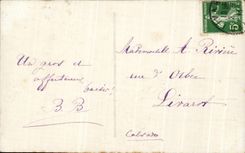 Un gros et
affectueux baiser
B B
Mademoiselle A Rivière
rue d'Orbec
Livarot
Calvados
5